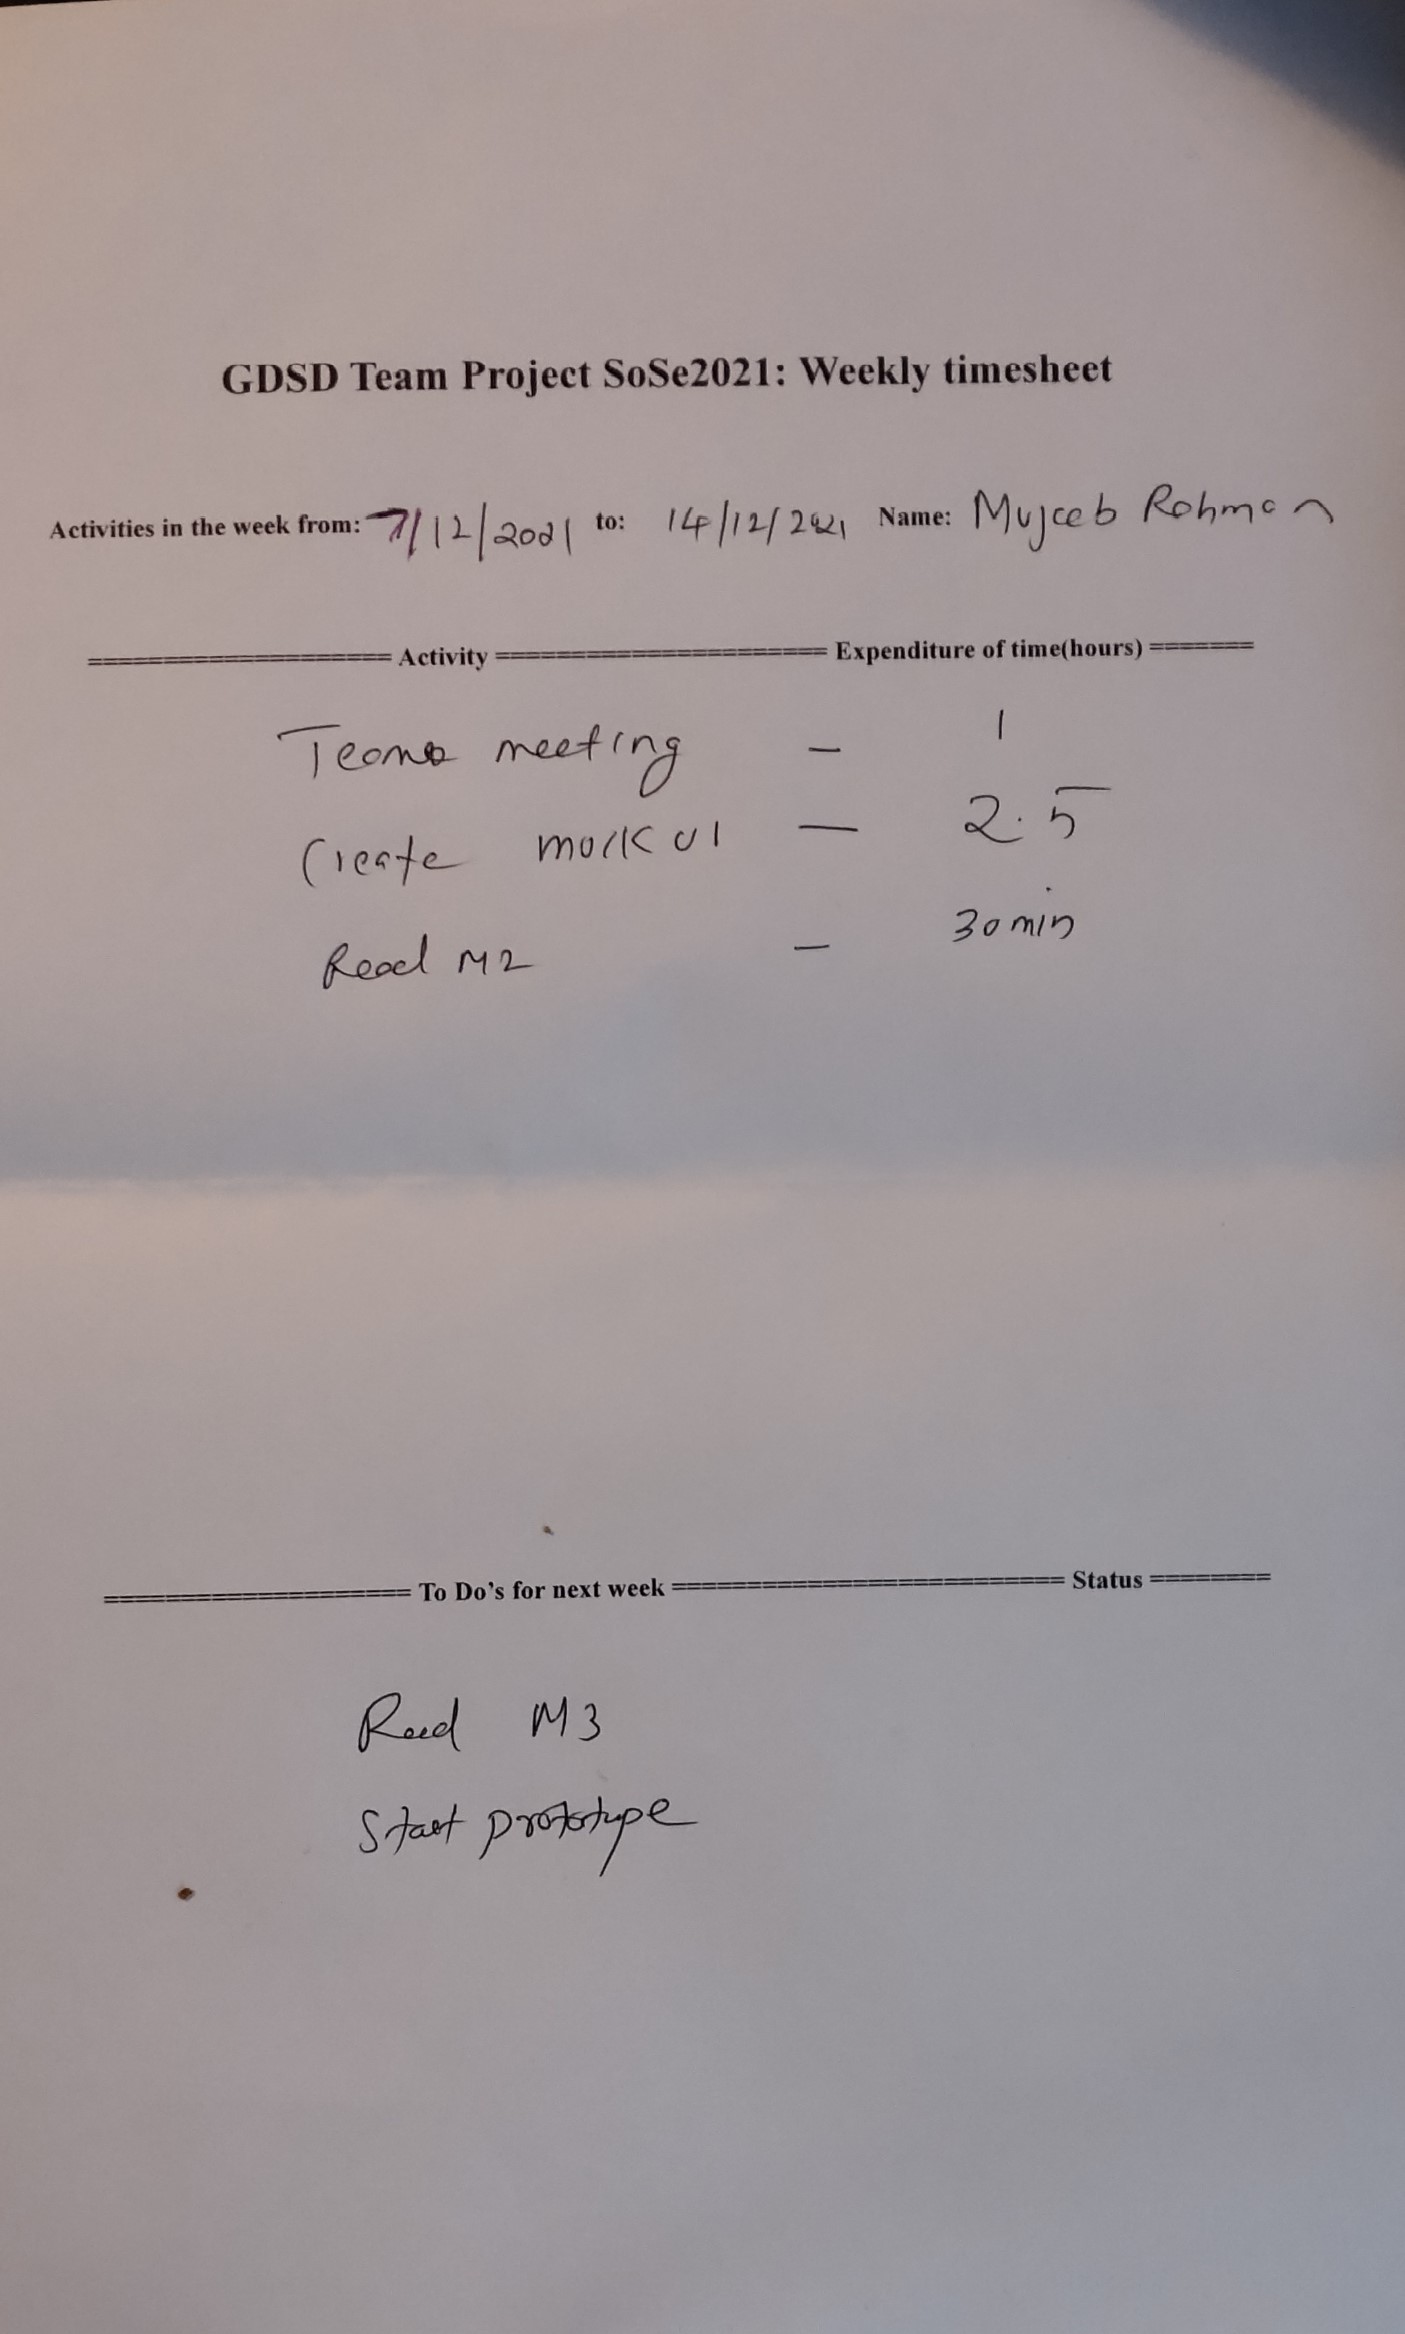 GDSD Team Project SoSe2021: Weekly timesheet
Activities in the week from: 7/12/2021 to: 14/12/2021 Name: Mujeeb Rohman
==================== Activity ====================== Expenditure of time(hours) =======
Teams meeting - 1
Create mock UI - 2.5
Read M2 - 30 min
==================== To Do's for next week ========================== Status ========
Read M3
Start prototype